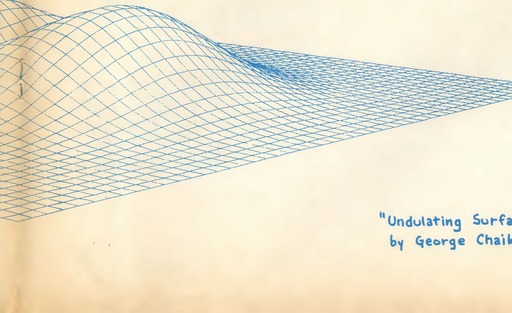 "Undulating Surfa
by George Chaik